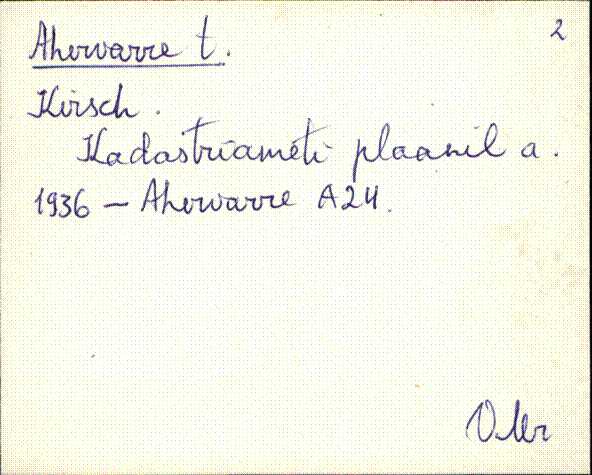 2
Aherwarre t.
Kirsch.
Kadastriameti plaanil a.
1936 — Aherwarre A24.